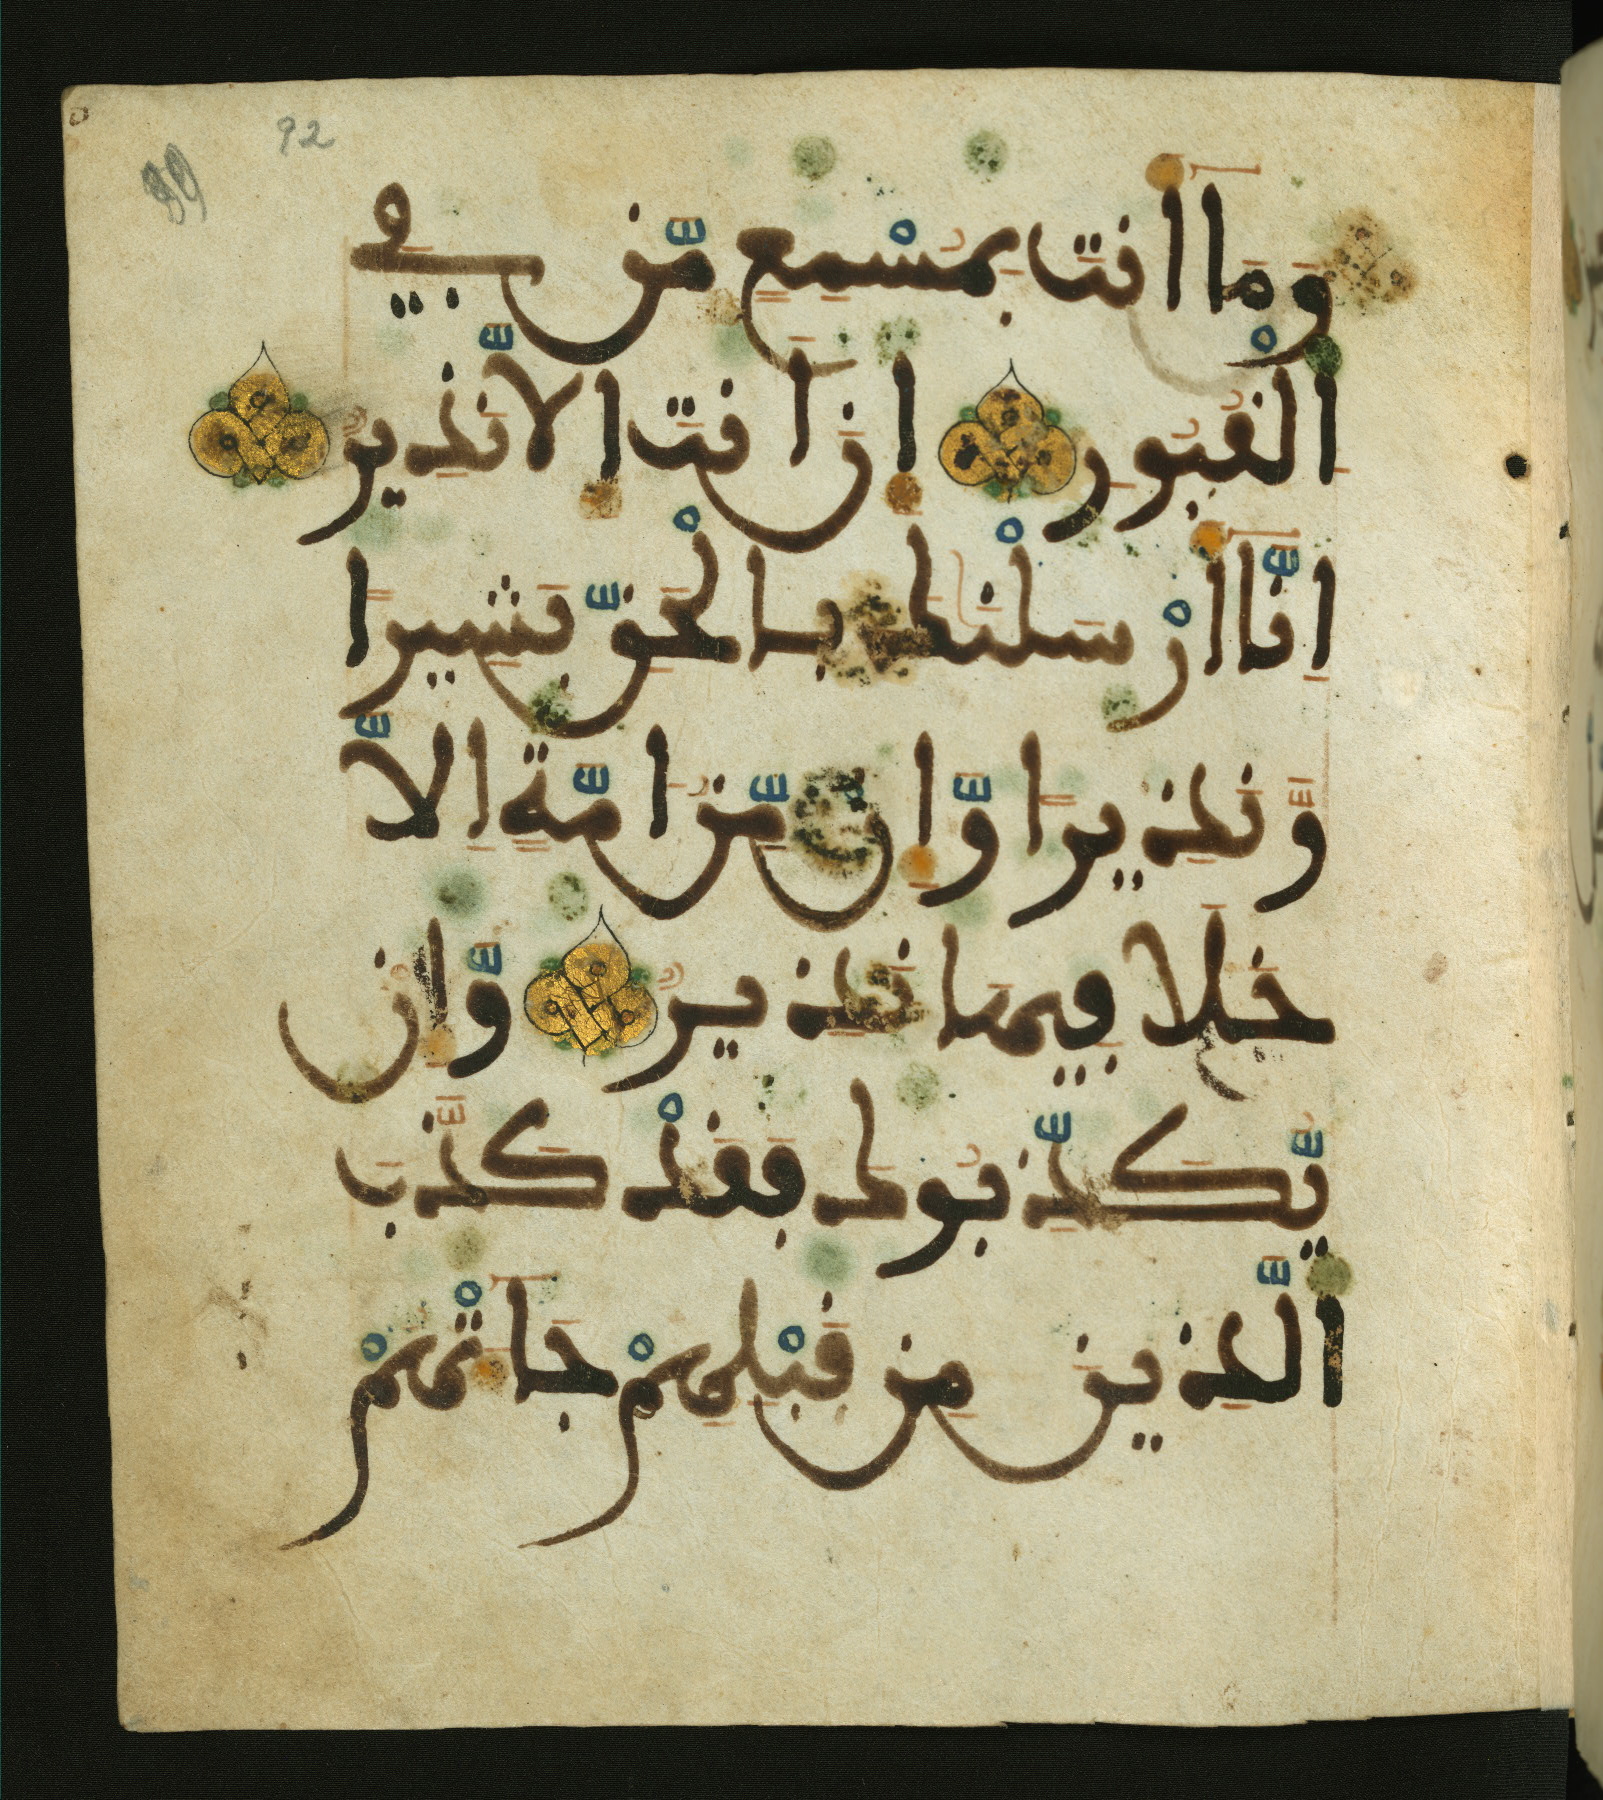 92
99
وَمَا أَنتَ بِمُسْمِعٍ مَّن فِي
الْقُبُورِ إِنْ أَنتَ إِلَّا نَذِيرٌ
إِنَّا أَرْسَلْنَٰكَ بِالْحَقِّ بَشِيرًا
وَنَذِيرًا وَّإِن مِّنْ أُمَّةٍ إِلَّا
خَلَا فِيهَا نَذِيرٌ وَّإِنْ
يُّكَذِّبُوكَ فَقَدْ كَذَّبَ
الَّذِينَ مِن قَبْلِهِمْ جَآءَتْهُمْ